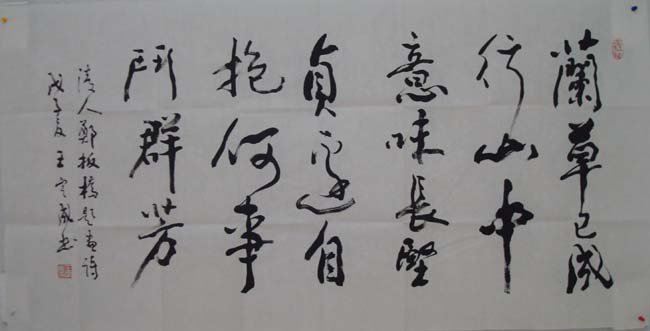 蘭草已成
行山中
意味長堅
貞還自
抱何事
鬥群芳
清人鄭板橋題畫詩
戊子夏王